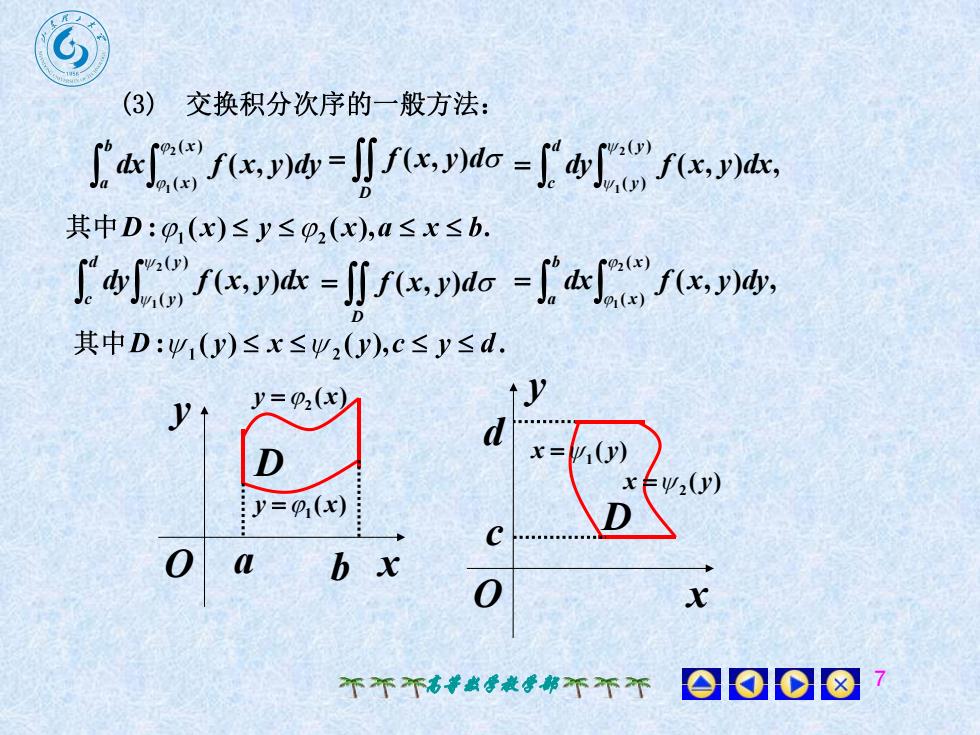 (3) 交换积分次序的一般方法：
∫_a^b dx∫_{φ₁(x)}^{φ₂(x)} f(x, y)dy = ∬_D f(x, y)dσ = ∫_c^d dy∫_{ψ₁(y)}^{ψ₂(y)} f(x, y)dx,
其中D : φ₁(x) ≤ y ≤ φ₂(x), a ≤ x ≤ b.
∫_c^d dy∫_{ψ₁(y)}^{ψ₂(y)} f(x, y)dx = ∬_D f(x, y)dσ = ∫_a^b dx∫_{φ₁(x)}^{φ₂(x)} f(x, y)dy,
其中D : ψ₁(y) ≤ x ≤ ψ₂(y), c ≤ y ≤ d.
y
y = φ₂(x)
D
y = φ₁(x)
O a b x
y
d
x = ψ₁(y)
x = ψ₂(y)
D
c
O x
高等数学教学部
7